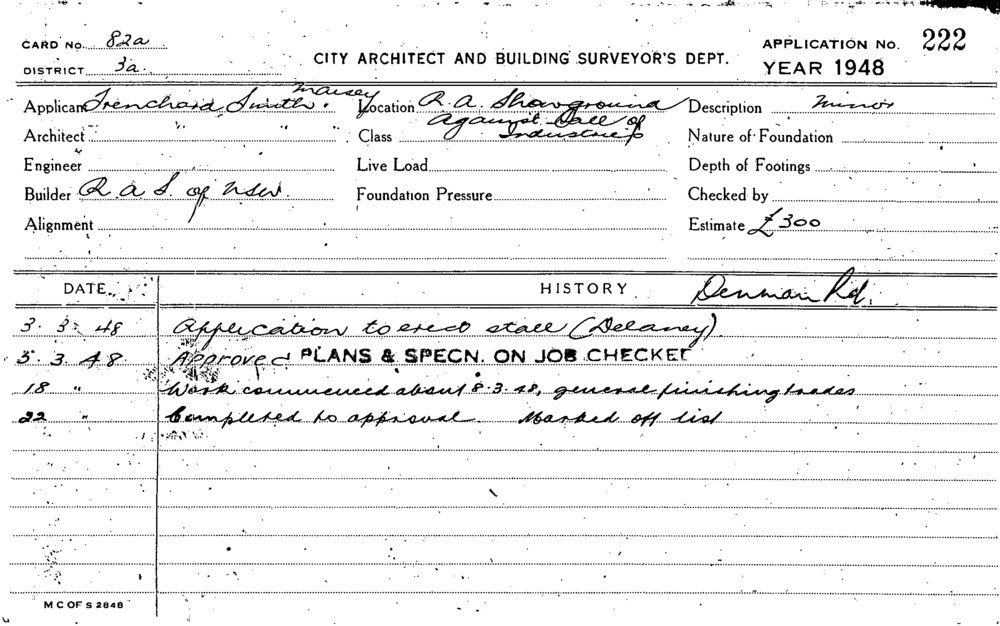 CARD NO. 82a
DISTRICT 3a.
CITY ARCHITECT AND BUILDING SURVEYOR'S DEPT.
APPLICATION NO. 222
YEAR 1948
Applicant Trenchard Smith & Maisey
Location R. A. Showground Against Hall of Industries
Description Minor
Architect " " "
Class
Nature of Foundation
Engineer
Live Load
Depth of Footings
Builder R. A. S. of NSW.
Foundation Pressure
Checked by
Alignment
Estimate £300
DATE HISTORY Denman Rd.
3. 3. 48 Application to erect stall (Delaney)
5. 3. 48 Approved PLANS & SPECN. ON JOB CHECKED
18 " Work commenced about 8.3.48, general finishing trades
22 " Completed to approval. Marked off list
M C OF S 2848